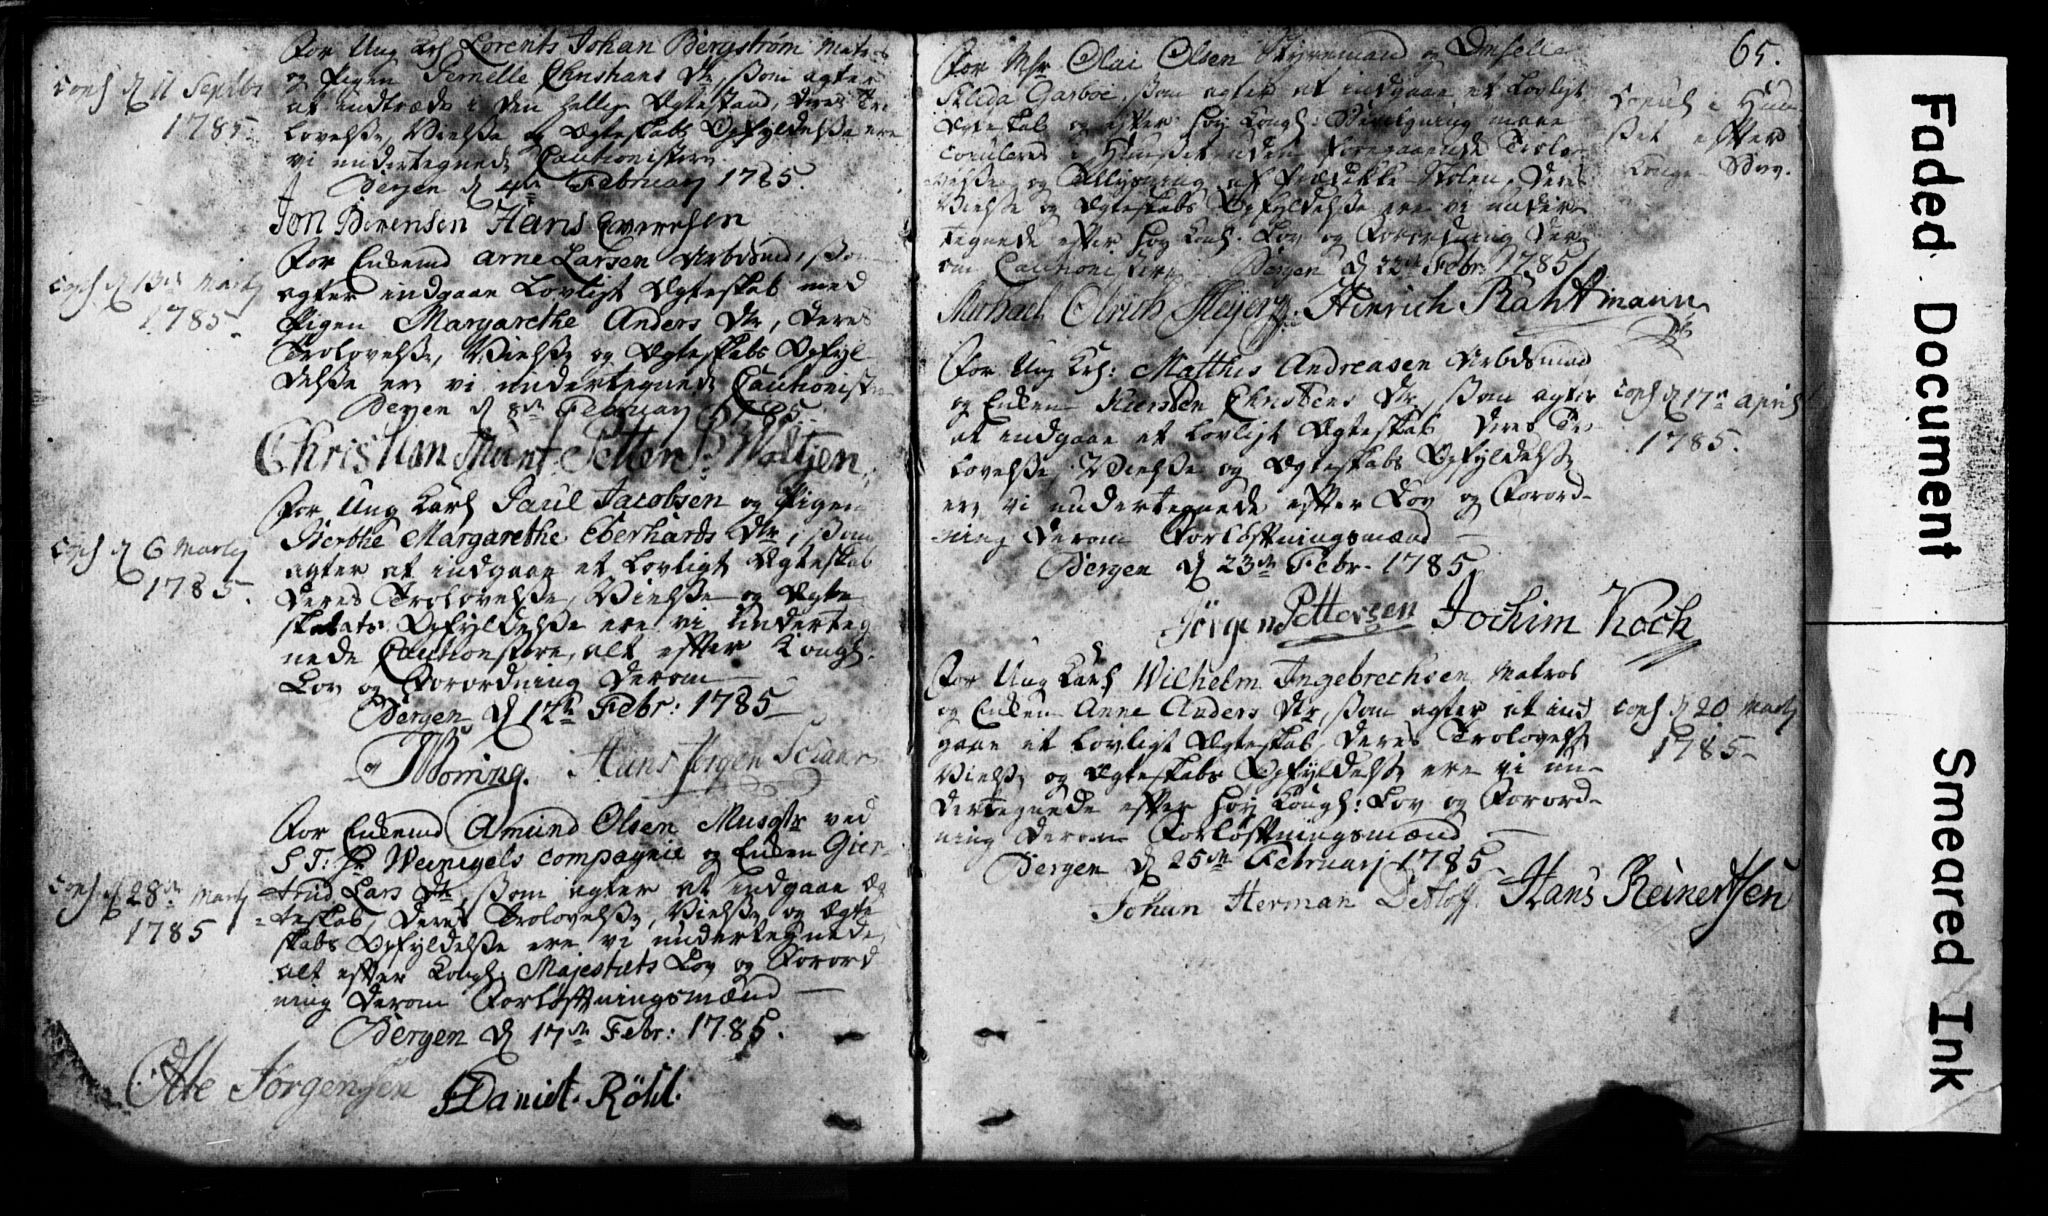 For Ung Karl Lorents Johan Bergstrøm Matros
og Pigen Pernelle Christians Dtr, som agter
at indtræde i den hellige Ægtestand, deres Tro
lovelse, Vielse og Ægteskabs Opfyldelse ere
vi undertegnede Cautionister
Bergen d 4de February 1785.
Jon Berensen Hans Evertsen
Cops d 11 Septbr
1785.
For Enkemd Arne Larsen Arbdsmd, som
agter indgaae Lovligt Ægteskab med
Pigen Margarethe Anders Dtr, deres
Trolovelse, Vielse og Ægteskabs Opfyl
delse ere vi undertegnede Cautionister
Bergen d 8de February 1785.
Christian Munt Petter P: Woltjen
Cops d 13de Marty
1785.
For Ung Karl Paul Jacobsen og Pigen
Berthe Margarethe Eberhards Dtr, som
agter at indgaae et Lovligt Ægteskab
deres Trolovelse, Vielse og Ægte
skabs Opfyldelse ere vi underteg
nede Cautionister, alt efter Kongl.
Lov og Forordning derom
Bergen d 12te Febr: 1785
Worring. Hans Jørgen Sciaar
Cops d 6 Marty
1785.
For Enkemd Amund Olsen Musqtr ved
S T: Hr Weinigels Compagnie og Enken Gier-
trud Lars Dtr, som agter at indgaae Æg
teskab, deres Trolovelse, Vielse og Ægte
skabs Opfyldelse ere vi undertegnede,
alt efter Kongl Majestæts Lov og Forord
ning derom Forløftningsmænd
Bergen d 17de Febr: 1785.
Otte Jørgensen Daniel Röhl.
Cops d 28de Marty
1785
65.
For Mr Olai Olsen Styremand og Dmselle
Garboe, som agter at indgaae et Lovligt
Ægteskab og efter høy Kongl: Bevilgning maae
Copuleres i Huuset uden foregaaende Trolo-
velse og Tillysning af Prædike Stolen, deres
Vielse og Ægteskabs Opfyldelse ere vi under
tegnede efter høy Kongl. Lov og Forordning der
om Cautionister Bergen d 22de Febr: 1785
Michael Olrich Heyer Hinrich Rahtmann
Copul i Huu
set efter
Konge Brev.
For Ung Krl: Matthis Andreasen Arbdsmand
og Enken Kiersten Christens Dtr, som agter
at indgaae et Lovligt Ægteskab deres Tro
lovelse, Vielse og Ægteskabs Opfyldelse
ere vi undertegnede efter Lov og Forord-
ning derom Forløftningsmænd
Bergen d 23de Febr. 1785
Jörgen Pettersen Jochim Koch
Cops d 17de April
1785.
For Ung Karl Wilhelm Ingebrechsen Matros
og Enken Anne Anders Dtr, som agter at ind
gaae et Lovligt Ægteskab, deres Trolovelse
Vielse og Ægteskabs Opfyldelse ere vi un-
dertegnede efter høy Kongl: Lov og Forord-
ning derom Forløftningsmænd
Bergen d 25de February 1785
Johan Herman Detloff. Hans Reinertsen
Cops d 20 Marty
1785
Faded Document
Smeared Ink